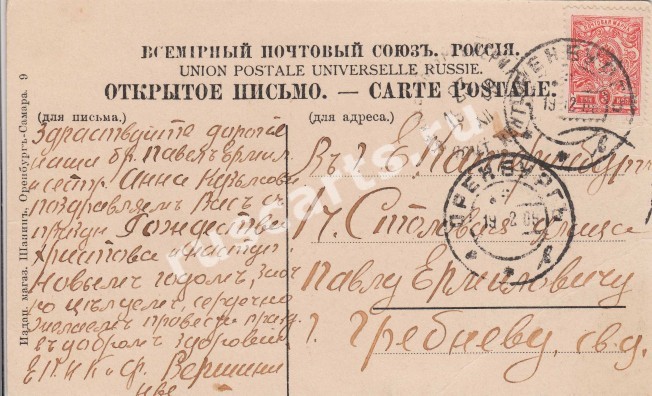 ВСЕМІРНЫЙ ПОЧТОВЫЙ СОЮЗЪ. РОССІЯ.
UNION POSTALE UNIVERSELLE RUSSIE.
ОТКРЫТОЕ ПИСЬМО. — CARTE POSTALE.
(для письма.)
Здраствуйте дорогіе
наши бр. Павелъ Ермил
и сестр. Анна
поздравляем Васъ съ
Рождества
Христова и наступ
Новыем годом,
цѣлуем, сердечно
Желаем провести
въ добром здоровіи
Вершини
(для адреса.)
Въ г.
Столовая улица
Павлу Ермиловичу
г. Гребневу, св. д.
ОРЕНБУРГЪ
19 2 09
Издан. магаз. Шанинъ, Оренбургъ-Самара. 9
ruscarts.ru